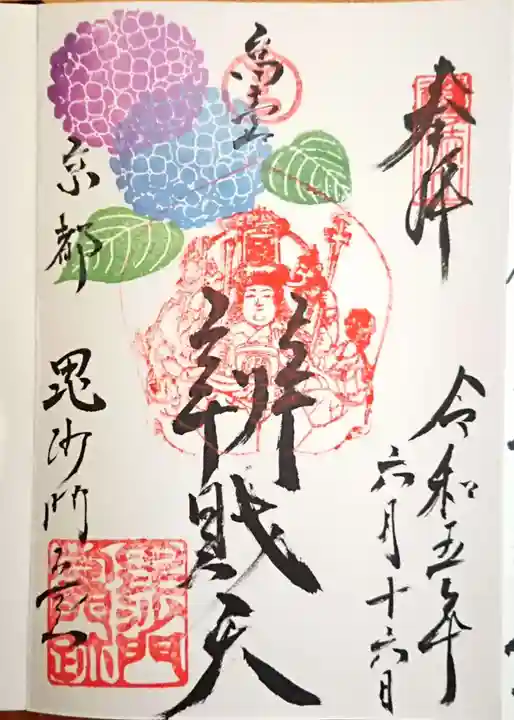 奉拝
令和五年
六月十六日
高臺
辨財天
京都 毘沙門堂